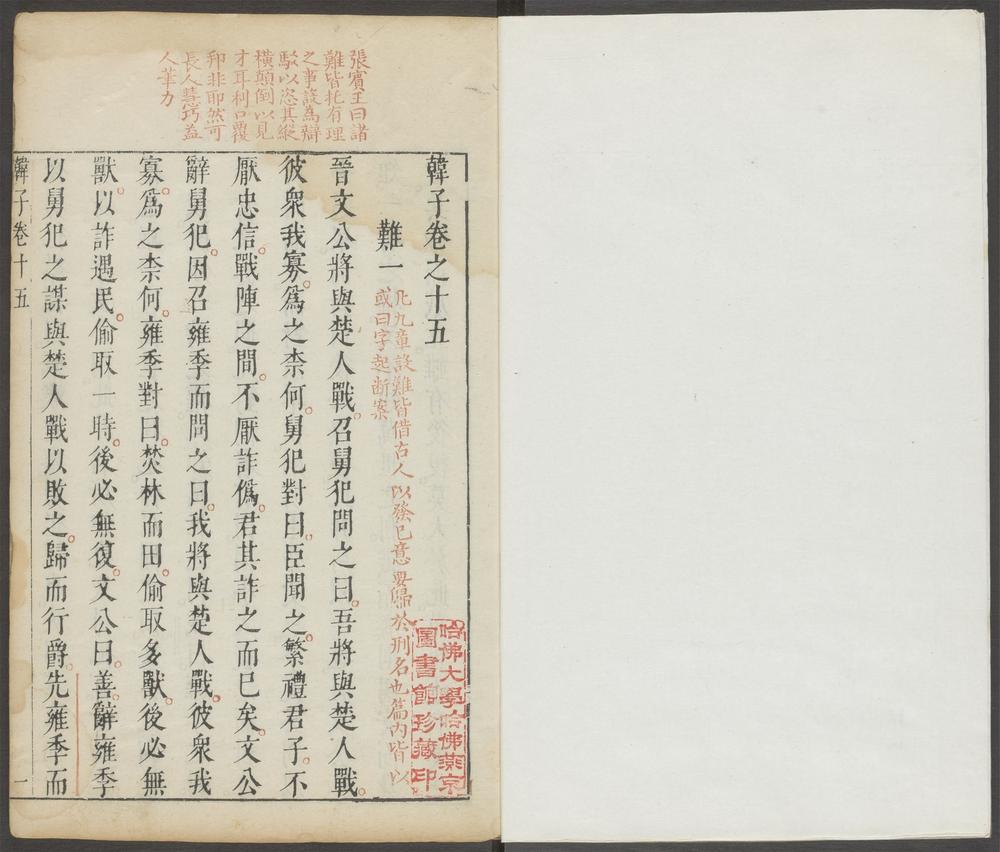 張賓王曰諸
難皆托有理
之事設為辯
駁以恣其縱
橫顛倒以見
才耳利口覆
邦非耶然可
長人慧巧益
人筆力
韓子卷之十五
難一
凡九章設難皆借古人以發己意要歸於刑名也篇內皆以
或曰字起斷案
晉文公將與楚人戰。召舅犯問之曰。吾將與楚人戰。
彼衆我寡。爲之柰何。舅犯對曰。臣聞之。繁禮君子。不
厭忠信。戰陣之間。不厭詐僞。君其詐之而已矣。文公
辭舅犯。因召雍季而問之曰。我將與楚人戰。彼衆我
寡。爲之柰何。雍季對曰。焚林而田。偷取多獸。後必無
獸。以詐遇民。偷取一時。後必無復。文公曰。善。辭雍季
以舅犯之謀與楚人戰以敗之。歸而行爵。先雍季而
韓子卷十五
一
哈佛大學哈佛燕京
圖書館珍藏印